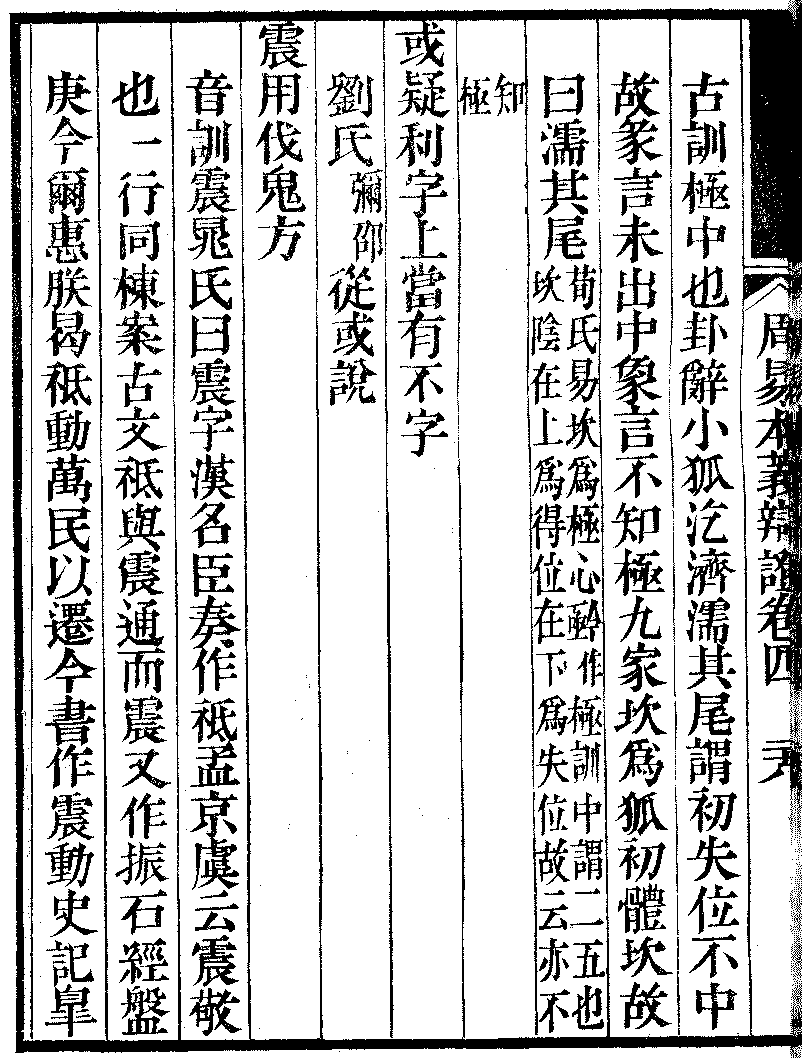 周易本義辯證卷四
古訓極中也卦辭小狐汔濟濡其尾謂初失位不中
故彖言未出中象言不知極九家坎爲狐初體坎故
曰濡其尾
荀氏易坎爲極心作極訓中謂二五也
坎陰在上爲得位在下爲失位故云亦不
知
極
或疑利字上當有不字
劉氏彌邵從或說
震用伐鬼方
音訓震晁氏曰震字漢名臣奏作祗孟京虞云震敬
也一行同棟案古文祗與震通而震又作振石經盤
庚今爾惠朕曷祗動萬民以遷今書作震動史記皐